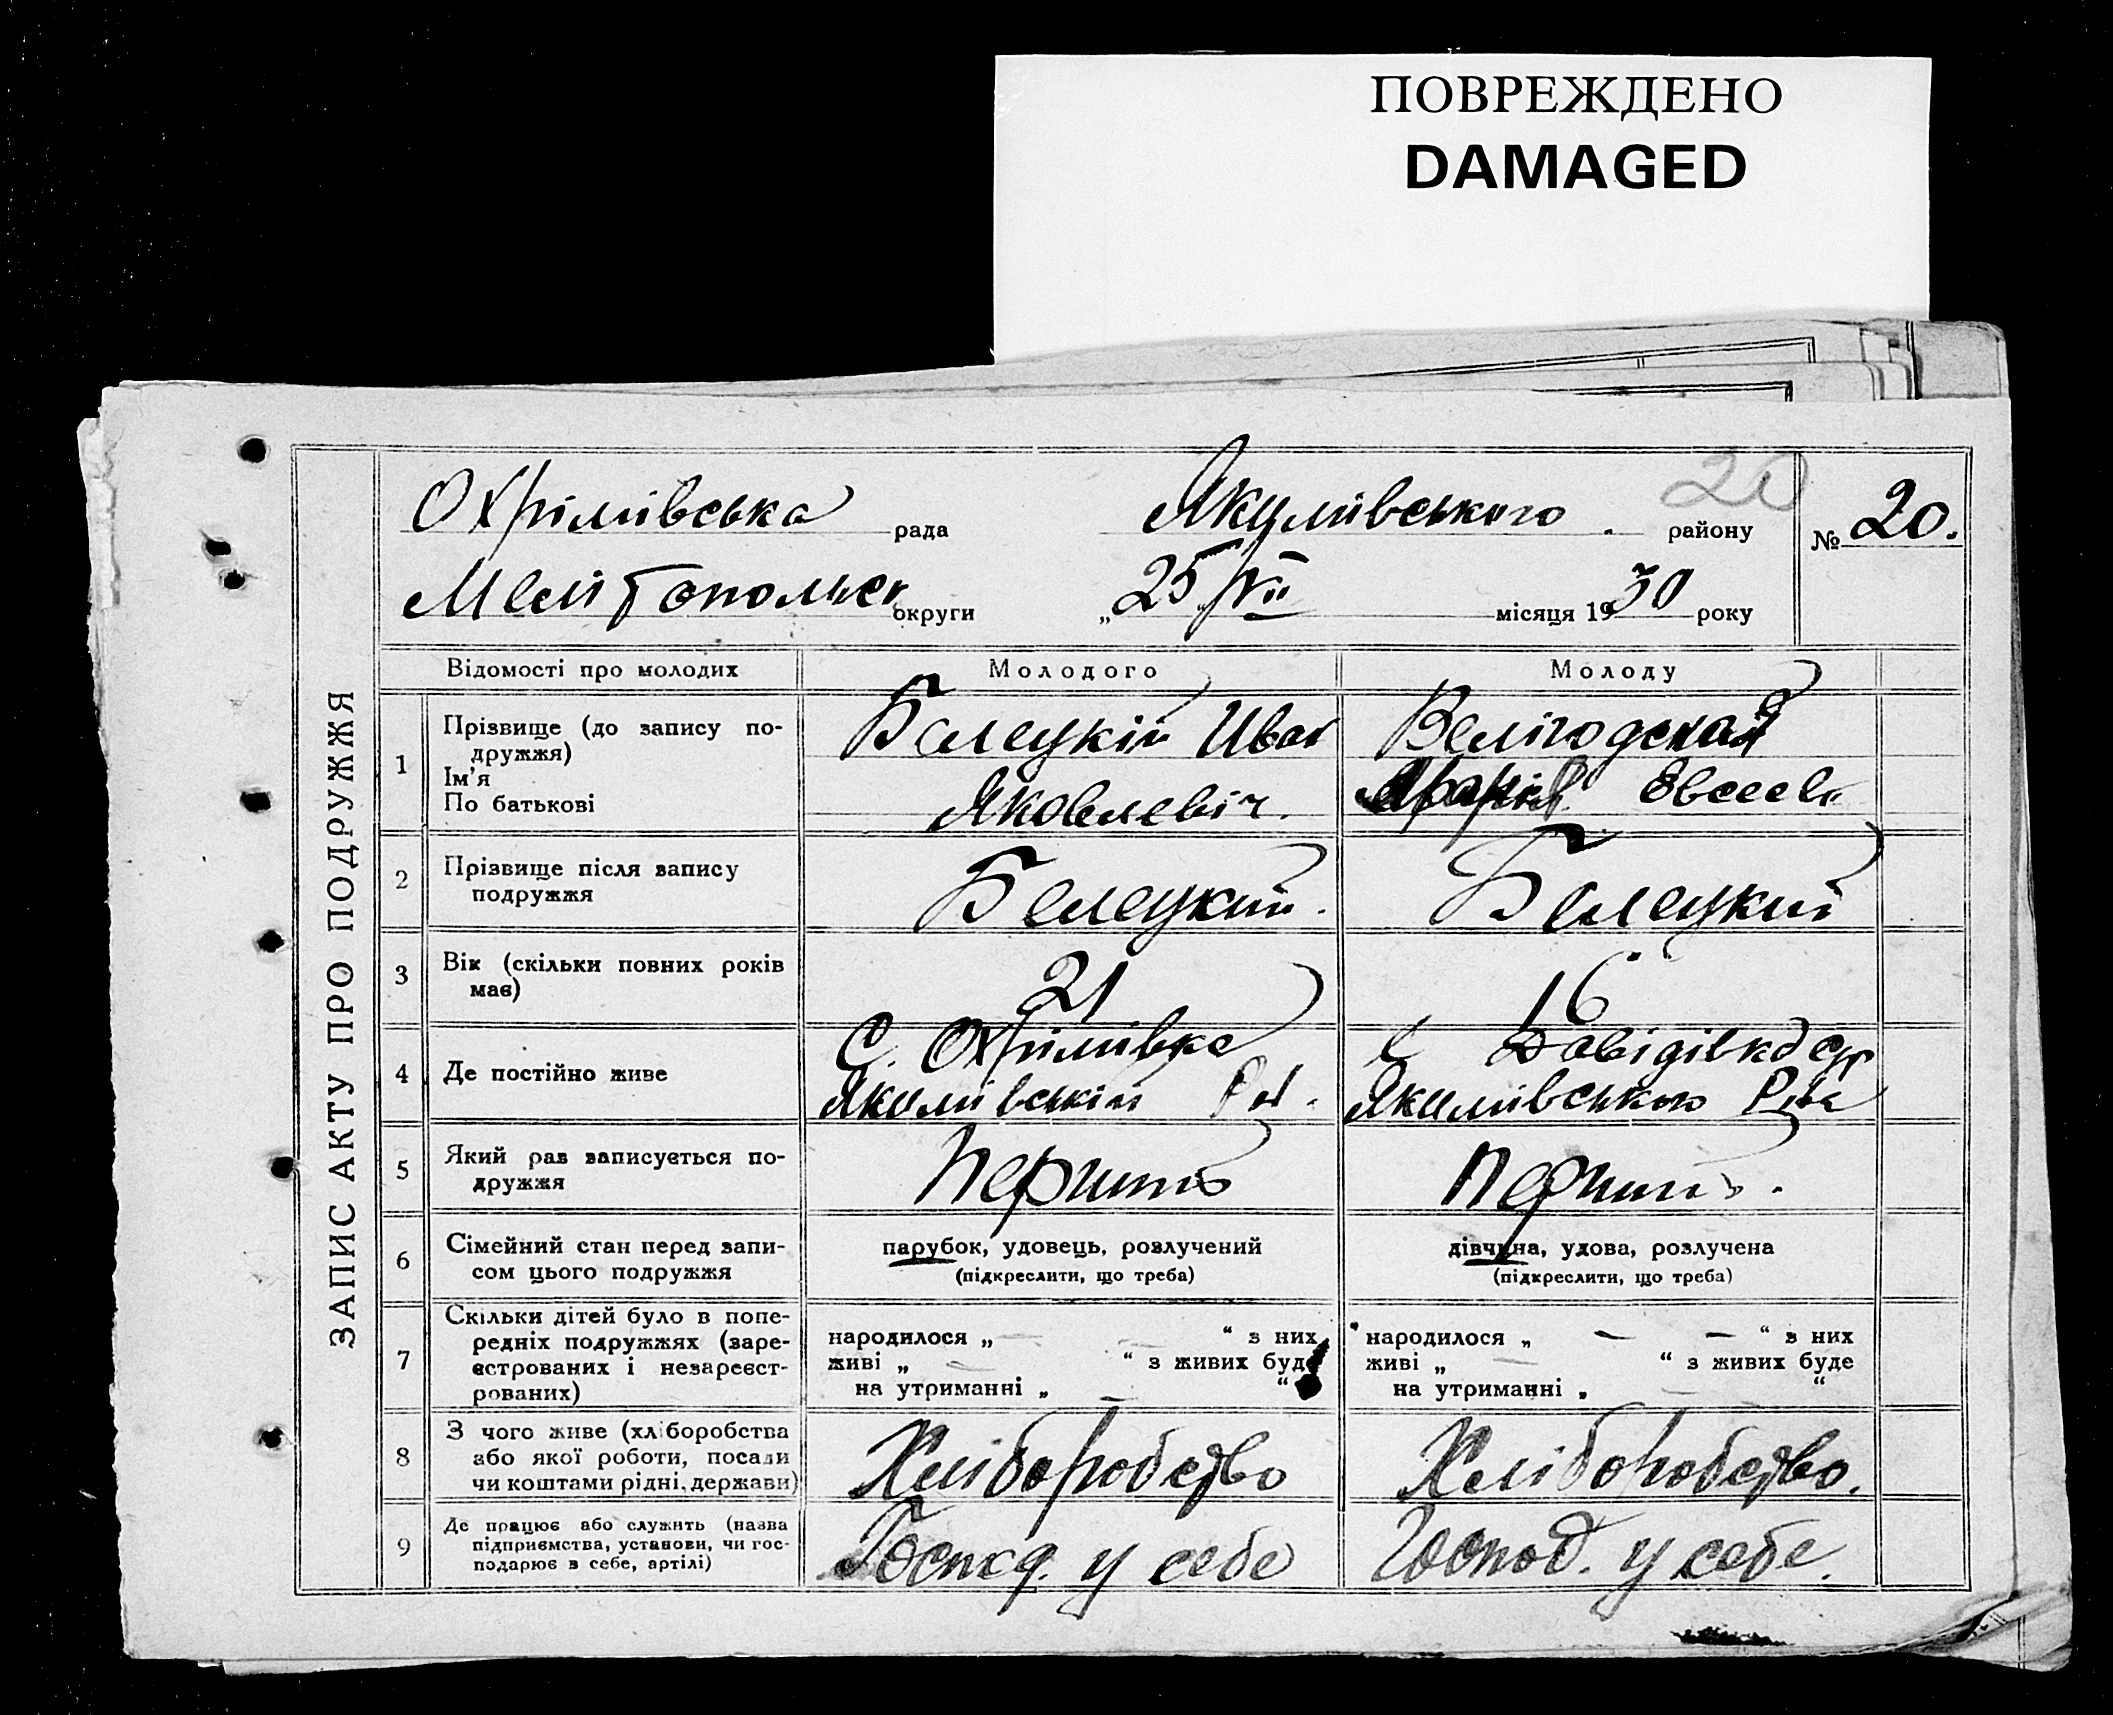 ПОВРЕЖДЕНО
DAMAGED
20
Охрімівська рада Якимівського району № 20.
Мелітопольск округи „25/VII місяця 1930 року
ЗАПИС АКТУ ПРО ПОДРУЖЖЯ
Відомості про молодих Молодого Молоду
1 Прізвище (до запису по-
дружжя)
Ім'я
По батькові
Белецкій Иван
Яковлевіч.
Велігодская
Евсеев
2 Прізвище після запису
подружжя
Белецкий.
Белецкий
3 Вік (скільки повних років
має)
21
16
4 Де постійно живе
С. Охрімівка
Якимівський Рн.
С Давідівка
Якимівського Р-на
5 Який раз записується по-
дружжя
Першить
Першить.
6 Сімейний стан перед запи-
сом цього подружжя
парубок, удовець, розлучений
(підкреслити, що треба)
дівчина, удова, розлучена
(підкреслити, що треба)
7 Скільки дітей було в попе-
редніх подружжях (заре-
єстрованих і незареєст-
рованих)
народилося „ — — “ з них
живі „ — “ з живих буде
на утриманні „ — “
народилося „ — — “ з них
живі „ — “ з живих буде
на утриманні „ — “
8 З чого живе (хліборобства
або якої роботи, посади
чи коштами рідні, держави)
Хліборобство
Хліборобство.
9 Де працює або служить (назва
підприємства, установи, чи гос-
подарює в себе, артілі)
Господ. у себе
Господ. у себе.